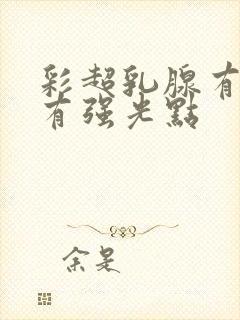 彩超乳腺有
有强光點
余是